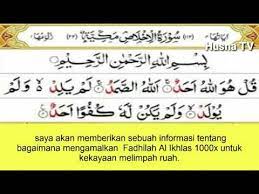 Husna TV
سُورَةُ الْإِخْلَاصِ مَكِّيَّةٌ
بِسْمِ اللَّهِ الرَّحْمَٰنِ الرَّحِيمِ
قُلْ هُوَ اللَّهُ أَحَدٌ ۝ اللَّهُ الصَّمَدُ ۝ لَمْ يَلِدْ وَلَمْ
يُولَدْ ۝ وَلَمْ يَكُنْ لَهُ كُفُوًا أَحَدٌ ۝
saya akan memberikan sebuah informasi tentang
bagaimana mengamalkan Fadhilah Al Ikhlas 1000x untuk
kekayaan melimpah ruah.